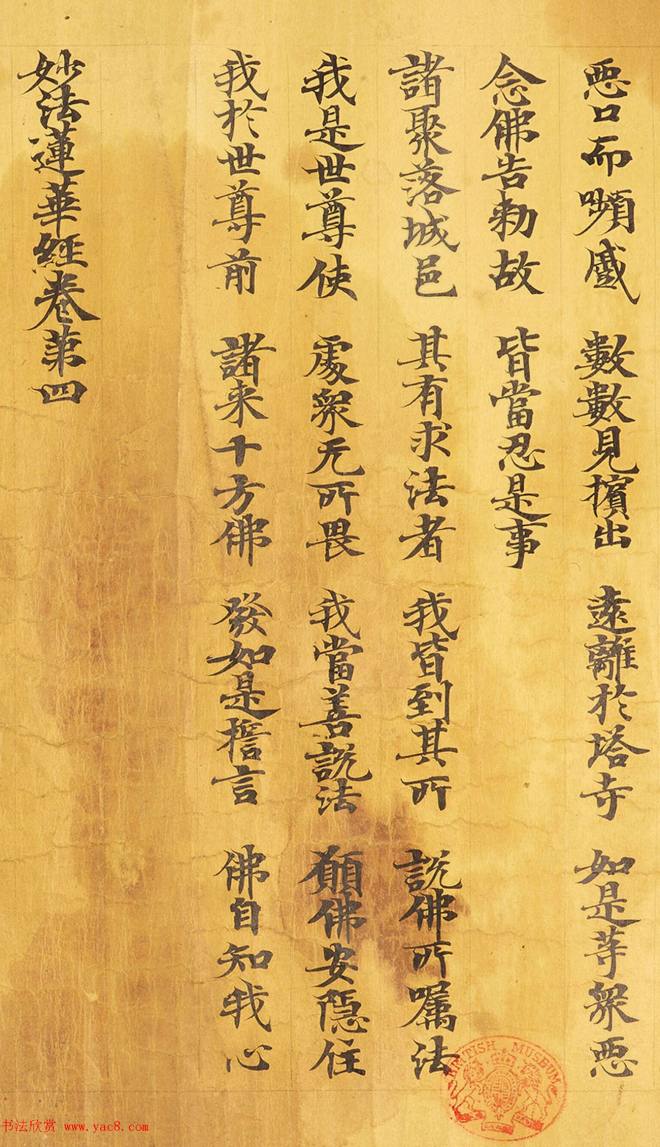 惡口而嚬蹙 數數見擯出 遠離於塔寺 如是等衆惡
念佛告勑故 皆當忍是事
諸聚落城邑 其有求法者 我皆到其所 說佛所囑法
我是世尊使 處衆无所畏 我當善說法 願佛安隱住
我於世尊前 諸来十方佛 發如是誓言 佛自知我心
妙法蓮華經卷第四
BRITISH MUSEUM
书法欣赏 www.yac8.com